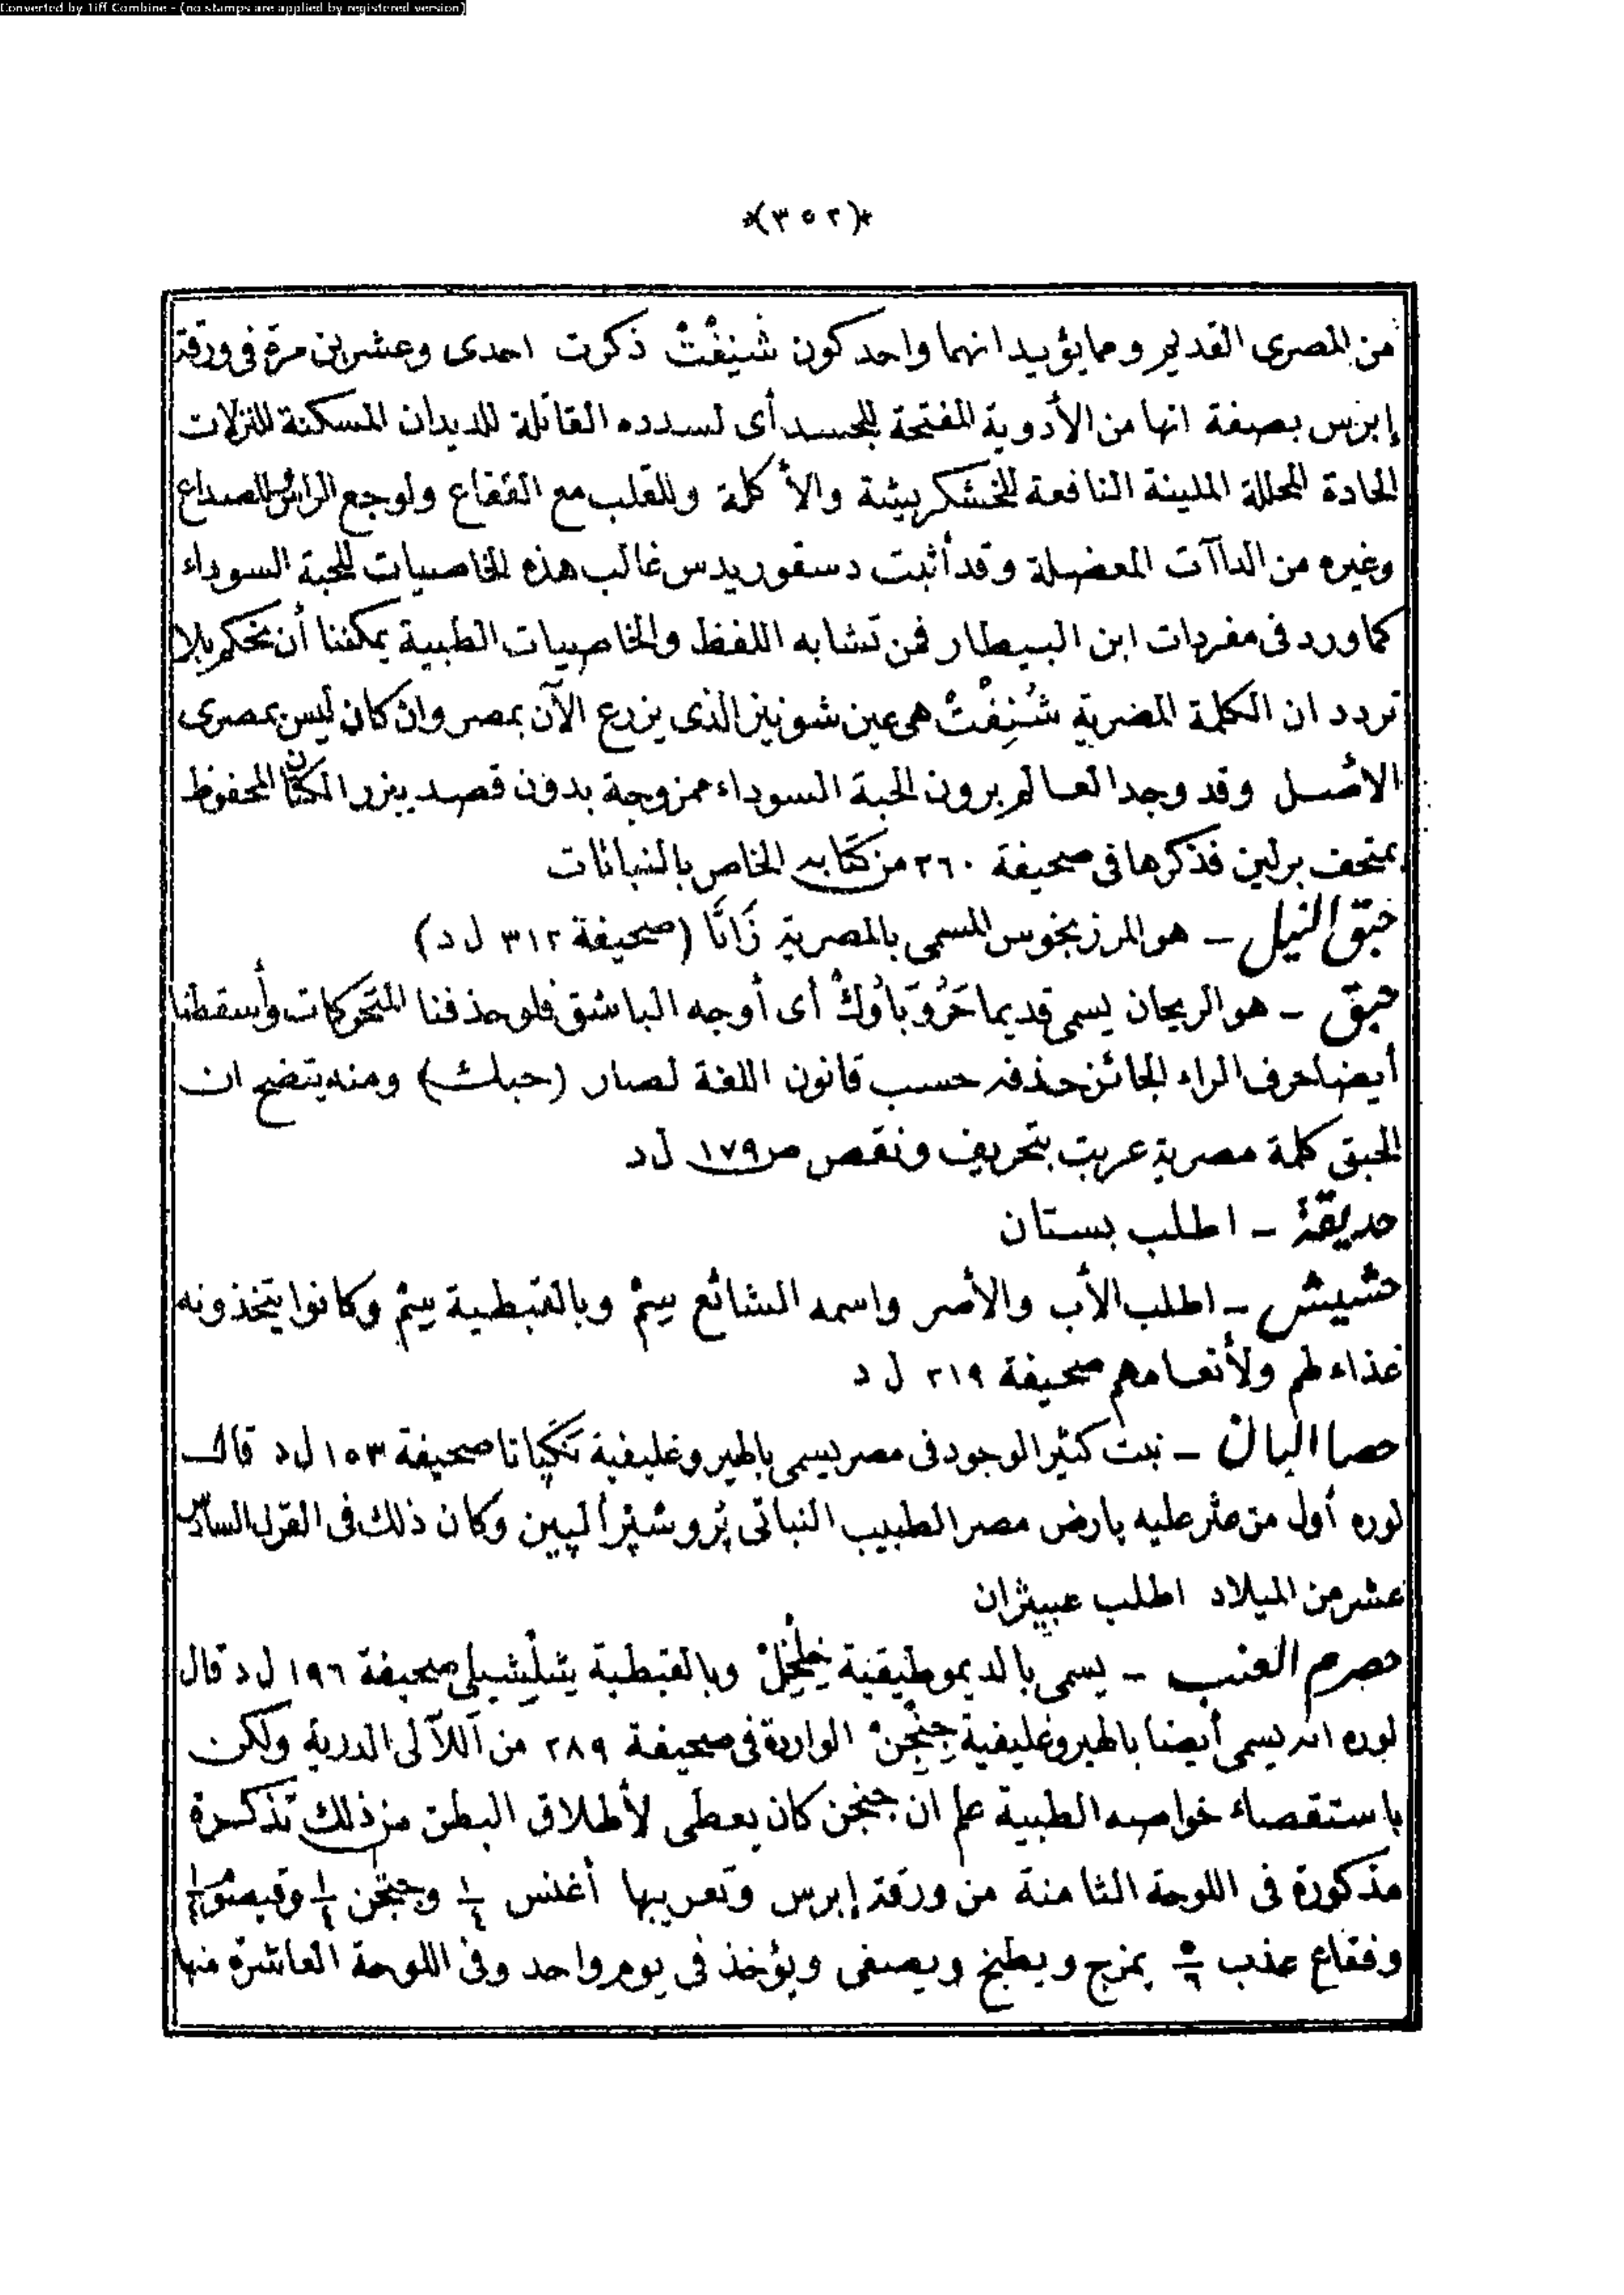 Converted by Tiff Combine - (no stamps are applied by registered version)
*(٣٥٢)*
من المصرى القديم ومما يؤيد انهما واحد كون شنفت ذكرت احدى وعشرين مرة فى ورقة
إبرس بصفة انها من الأدوية المفتحة للجسد أى لسدده القاتلة للديدان المسكنة للنزلات
الحادة المحللة الملينة النافعة للخشكريشة والأكلة وللقلب مع الفقاع ولوجع الرأس للصداع
وغيره من الداآت المعضلة وقد أثبت دسقوريدس غالب هذه الخاصيات للحبة السوداء
كما ورد فى مفردات ابن البيطار فمن تشابه اللفظ والخاصيات الطبية يمكننا أن نحكم بلا
تردد ان الكلمة المصرية شُنِفْتْ هى عين شونيز الذى يزرع الآن بمصر وان كان ليس بمصرى
الاصل وقد وجد العالم برون الحبة السوداء ممزوجة بدون قصد ببزر الكتان المحفوظ
بمتحف برلين فذكرها فى صحيفة ٢٦٠ من كتابه الخاص بالنباتات
حبق النيل – هو المرزنجوس المسمى بالمصرية (صحيفة ٣١٢ ل د)
حبق – هو الريحان يسمى قديما أى أوجه الباشق فلو حذفنا المتحركات وأسقطنا
أيضا حرف الراء الجائز حذفه حسب قانون اللغة لصار (حبك) ومنه يتضح ان
الحبق كلمة مصرية عربت بتحريف ونقص ص ١٧٩ ل د
حديقة – اطلب بستان
حشيش – اطلب الأب والأصر واسمه الشائع سيم وبالقبطية سيم وكانوا يتخذونه
غذاء لهم ولأنعامهم صحيفة ٢١٩ ل د
حصا البان – نبت كثير الوجود فى مصر يسمى بالهيروغليفية صحيفة ١٥٣ ل د قال
لوره أول من عثر عليه بارض مصر الطبيب النباتى پروسپر ألپين وكان ذلك فى القرن السادس
عشر من الميلاد اطلب عبيثران
حصرم العنب – يسمى بالديموطيقية خلخل وبالقبطية صحيفة ١٩٦ ل د قال
لوره انه يسمى أيضا بالهيروغليفية جنجن الواردة فى صحيفة ٢٨٩ من اللآلى الدرية ولكن
باستقصاء خواصه الطبية علم ان جنجن كان يعطى لأطلاق البطن من ذلك تذكرة
مذكورة فى اللوحة الثامنة من ورقة إبرس وتعريبها أغنس ١/٤ وجنجن ١/٤
وفقاع عذب ٥/٦ يمزج ويطبخ ويصفى ويؤخذ فى يوم واحد وفى اللوحة العاشرة منها